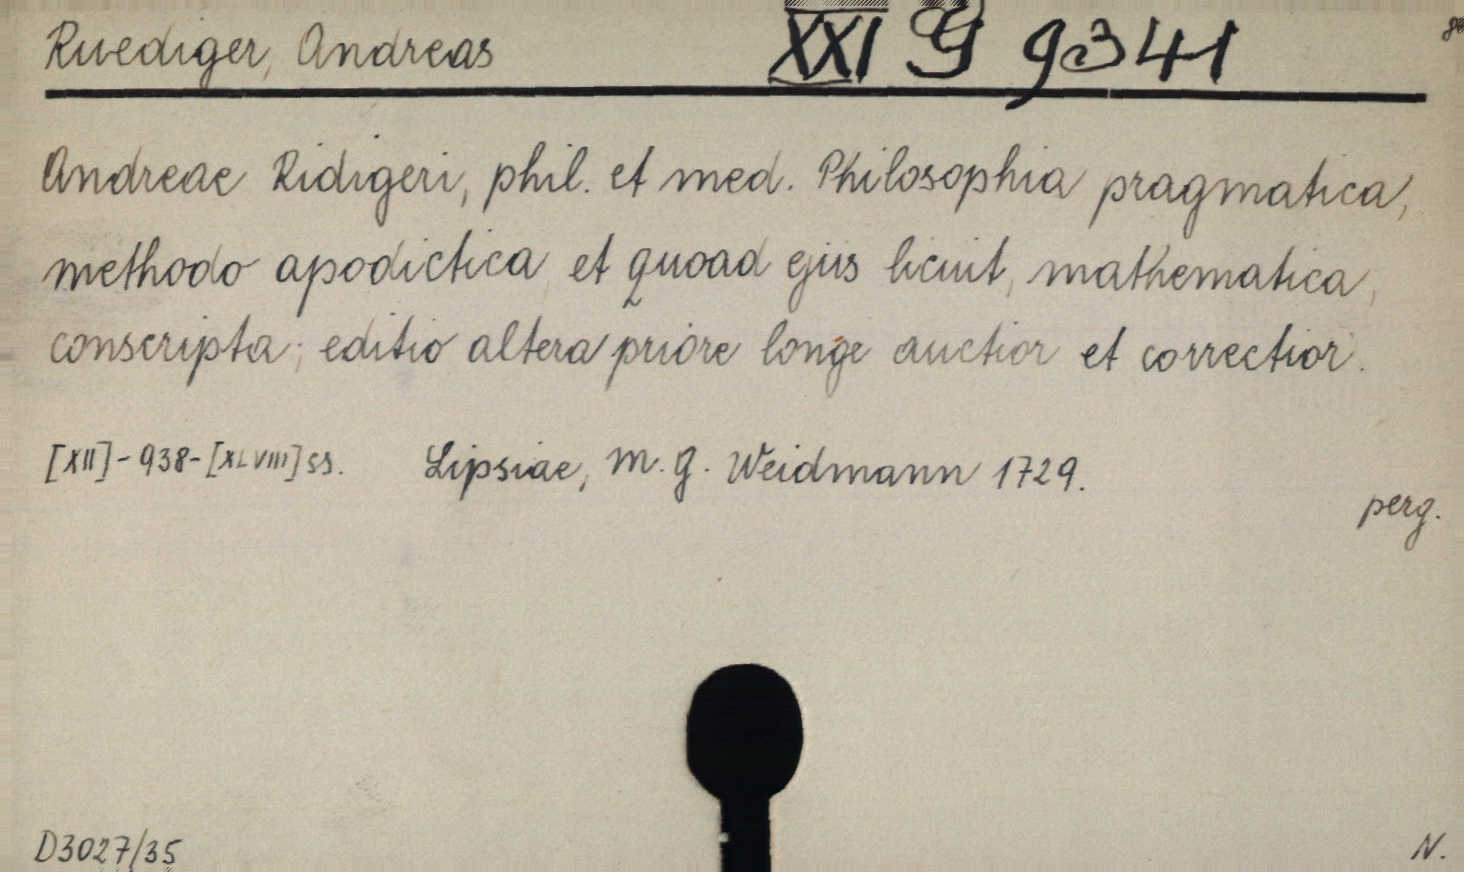 Ruediger, Andreas XXI G 9341 8°
Andreae Ridigeri, phil. et med. Philosophia pragmatica,
methodo apodictica et quoad ejus licuit, mathematica,
conscripta; editio altera priore longe auctior et correctior.
[XII]-938-[XLVIII] ss. Lipsiae, M. G. Weidmann 1729.
perg.
D3027/35 N.